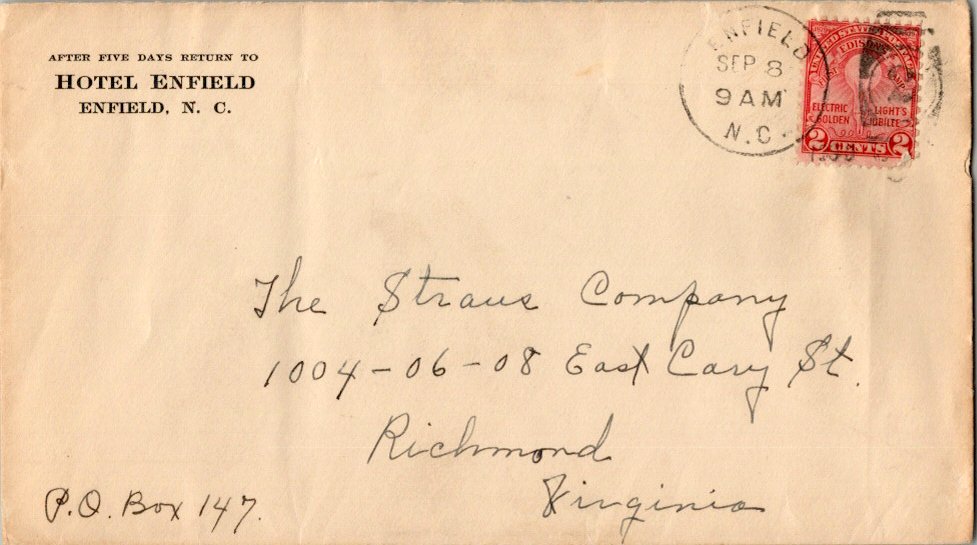 AFTER FIVE DAYS RETURN TO
HOTEL ENFIELD
ENFIELD, N. C.
ENFIELD
SEP 8
9 AM
N.C.
UNITED STATES POSTAGE
EDISON'S
FIRST LAMP
ELECTRIC LIGHT'S
GOLDEN JUBILEE
2 CENTS 2
The Straus Company
1004-06-08 East Cary St.
Richmond
Virginia
P.O. Box 147.